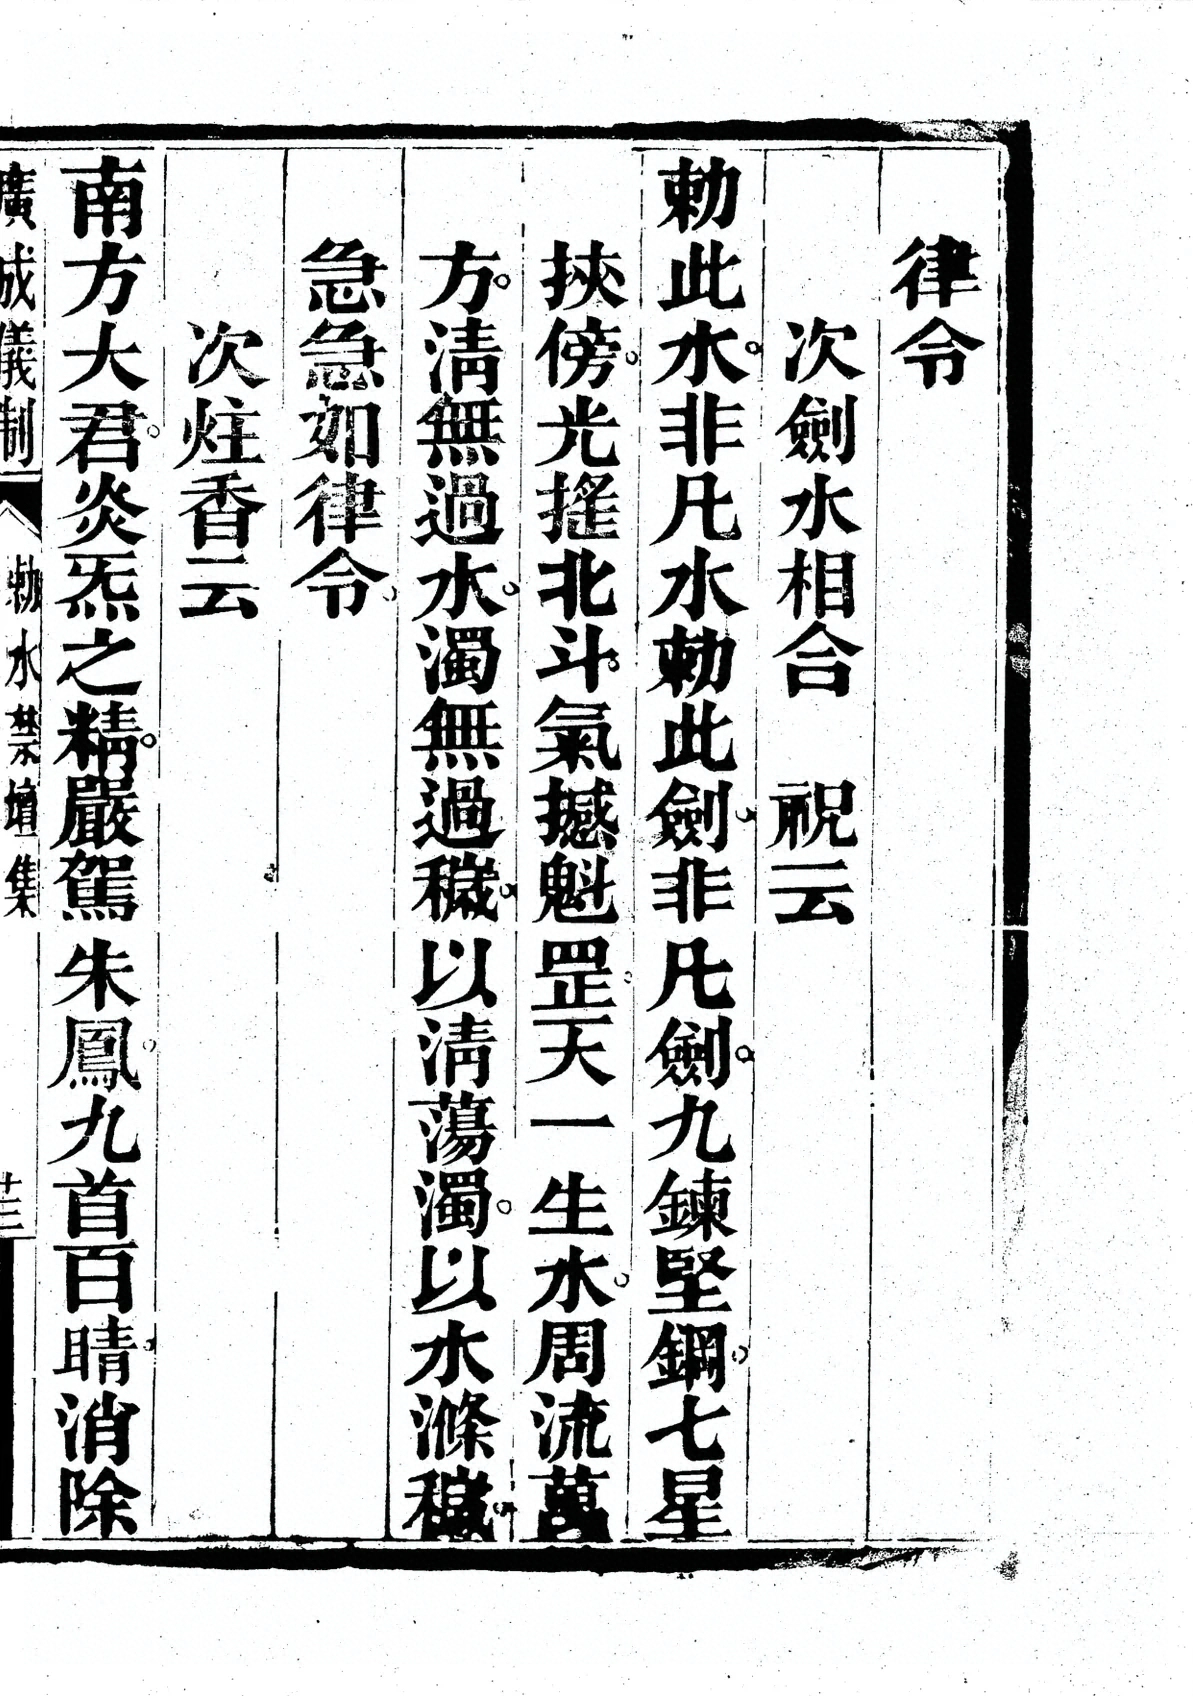 律令
次劍水相合　祝云
勅此水。非凡水勅此劍。非凡劍。九鍊堅鋼。七星
挾傍。光搖北斗。氣撼魁罡。天一生水。周流萬
方。淸無過水。濁無過穢。以淸蕩濁。以水滌穢。
急急如律令。
次炷香云
南方大君。炎炁之精。嚴駕朱鳳。九首百睛。消除
廣成儀制　勅水禁壇集